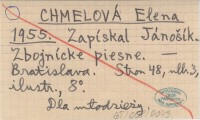 CHMELOVÁ Elena
1955. Zapískal Jánošík.
Zbojnícke piesne. —
Bratislava. Stron 48, nlb. 3,
ilustr., 8°.
Dla młodzieży.